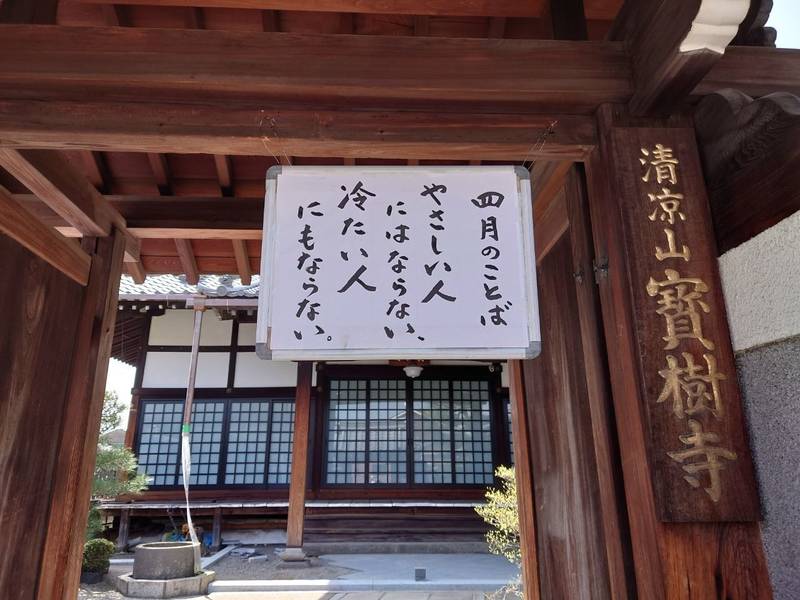 四月のことば
やさしい人
にはならない、
冷たい人
にもならない。
清凉山 寶樹寺